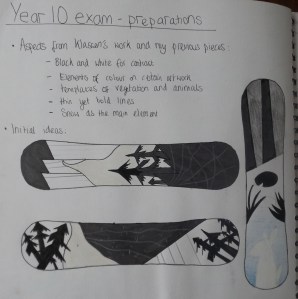 Year 10 exam - preparations
• Aspects from Klassen's work and my previous pieces:
- Black and white for contrast
- Elements of colour in certain artwork
- Templates of vegetation and animals
- thin yet bold lines
- Snow as the main element
• Initial ideas: